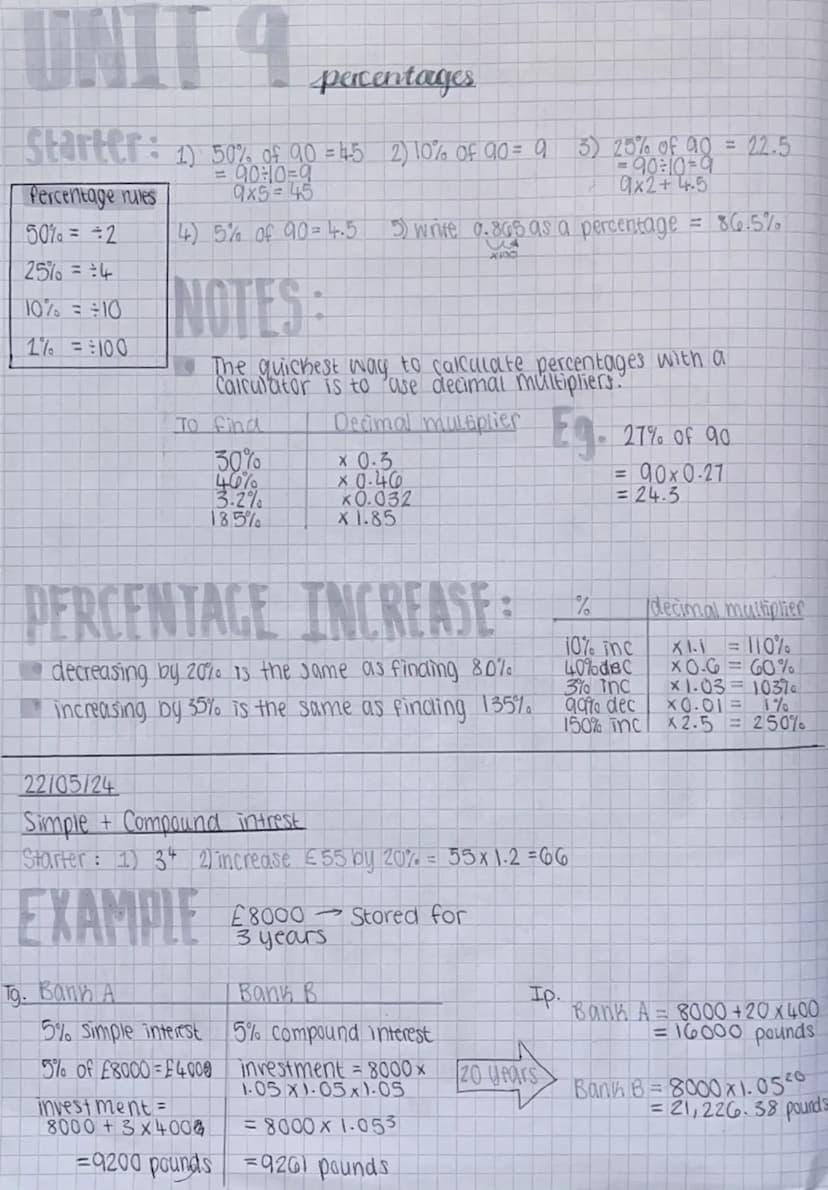 UNIT 9 percentages
Starter: 1) 50% of 90 = 45 2) 10% of 90 = 9 3) 25% of 90 = 22.5
= 90÷10=9 = 90÷10=9
9x5 = 45 9x2 + 4.5
Percentage rules
50% = ÷2
25% = ÷4
10% = ÷10
1% = ÷100
4) 5% of 90 = 4.5 5) write 0.865 as a percentage = 86.5%
x100
NOTES:
The quickest way to calculate percentages with a
calculator is to use decimal multipliers.
To find Decimal multiplier
30% x 0.3
46% x 0.46
3.2% x0.032
185% x 1.85
Eg. 27% of 90
= 90x0.27
= 24.3
PERCENTAGE INCREASE:
decreasing by 20% is the same as finding 80%
increasing by 35% is the same as finding 135%
% decimal multiplier
10% inc x1.1 = 110%
40% dec x0.6 = 60%
3% inc x1.03 = 103%
99% dec x0.01 = 1%
150% inc x2.5 = 250%
22/05/24
Simple + Compound intrest
Starter: 1) 3⁴ 2) increase £55 by 20% = 55 x 1.2 = 66
EXAMPLE £8000 → Stored for
3 years
Tg. Bank A
5% Simple interest
5% of £8000 = £400
investment =
8000 + 3 x 400
= 9200 pounds
Bank B
5% compound interest
investment = 8000 x
1.05 x 1.05 x 1.05
= 8000 x 1.05³
= 9261 pounds
20 years
Ip.
Bank A = 8000 + 20 x 400
= 16000 pounds
Bank B = 8000 x 1.05²⁰
= 21,226.38 pounds